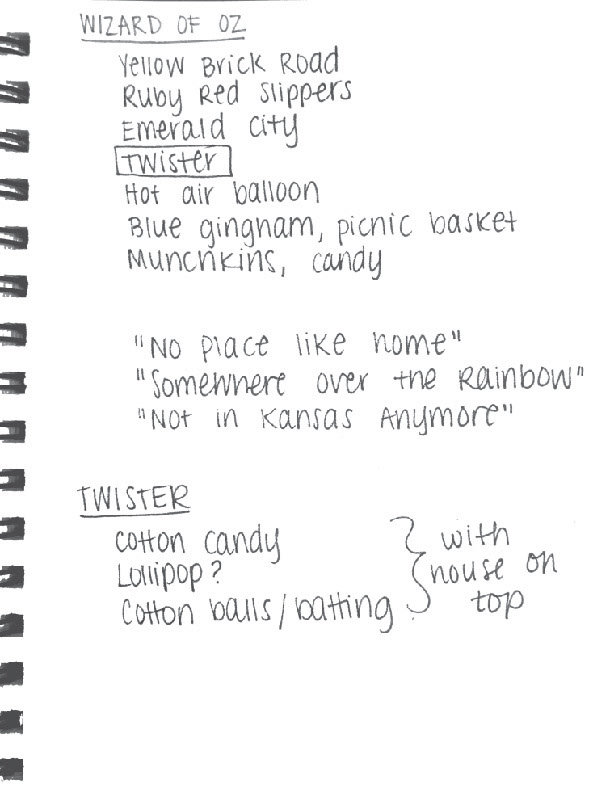 WIZARD OF OZ
Yellow Brick Road
Ruby Red Slippers
Emerald City
Twister
Hot air balloon
Blue gingham, picnic basket
Munchkins, candy
"No place like home"
"Somewhere over the Rainbow"
"Not in Kansas Anymore"
TWISTER
cotton candy
Lollipop?
Cotton balls/batting
with
house on
top